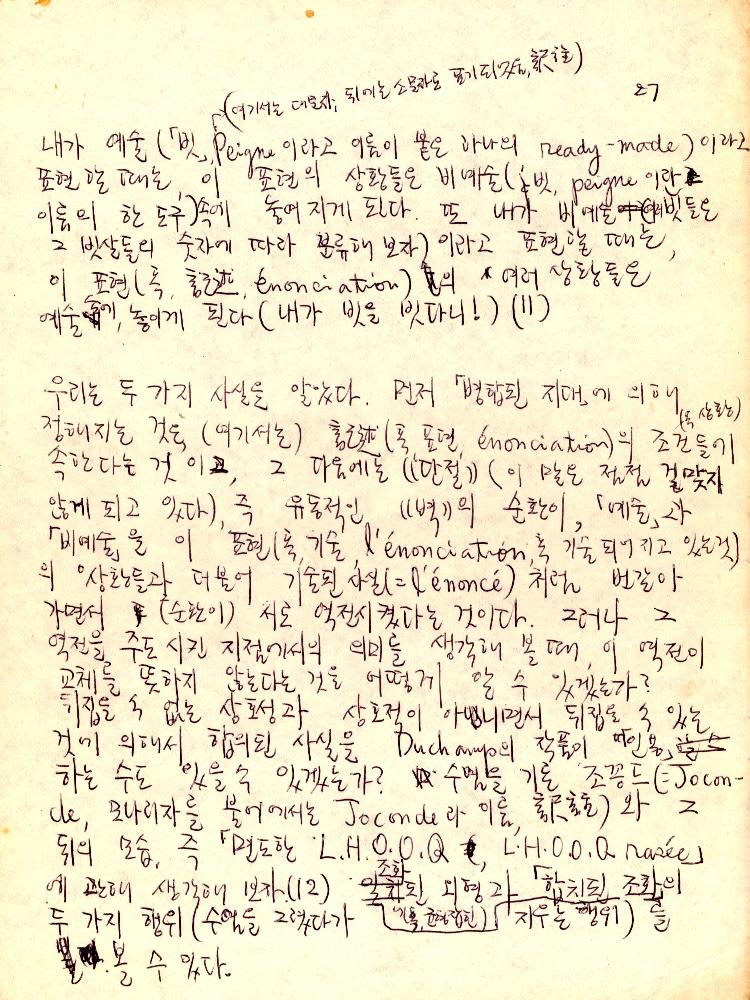 (여기서는 대문자, 뒤에는 소문자로 표기되었음, 訳註)
27
내가 예술(「빗」, Peigne 이라고 이름이 붙은 하나의 ready-made)이라고
표현할 때는, 이 표현의 상황들은 비예술(빗, peigne 이란
이름의 한 도구)속에 놓여지게 된다. 또 내가 비예술(빗들은
그 빗살들의 숫자에 따라 분류해 보자)이라고 표현할 때는,
이 표현(혹, énonciation)의 여러 상황들은
예술에, 놓이게 된다(내가 빗을 빗다니!) (11)
우리는 두 가지 사실을 알았다. 먼저 「병합된 지대」에 의해
정해지는 것은, (여기서는) (혹 표현, énonciation)의 조건들(혹 상황)에
속한다는 것이고, 그 다음에는 《단절》(이 말은 점점 걸맞지
않게 되고 있다), 즉 유동적인, 《벽》의 순환이, 「예술」과
「비예술」을 이 표현(혹, 기술, l'énonciation, 혹 기술되어지고 있는것)
의 상황들과 더불어 기술된 사실(=l'énoncé)처럼 번갈아
가면서 (순환이) 서로 역전시켰다는 것이다. 그러나 그
역전을 주도시킨 지점에서의 의미를 생각해 볼 때, 이 역전이
교체를 뜻하지 않는다는 것을 어떻게 알 수 있겠는가?
뒤집을 수 없는 상호성과 상호적이 아니면서 뒤집을 수 있는
것에 의해서 합의된 사실을 Duchamp의 작품이 인용,
하는 수도 있을 수 있겠는가? 수염을 기른 조꽁드(=Jocon-
de, 모나리자를 불어에서는 Joconde라 이름, 訳註)와 그
뒤의 모습, 즉 「면도한 L.H.O.O.Q, L.H.O.O.Q rasée」
에 관해 생각해 보자.(12) 조화된 외형과 「합치된 조화」의
두 가지 행위(수염을 그렸다가 지우는 행위)를
볼 수 있다.